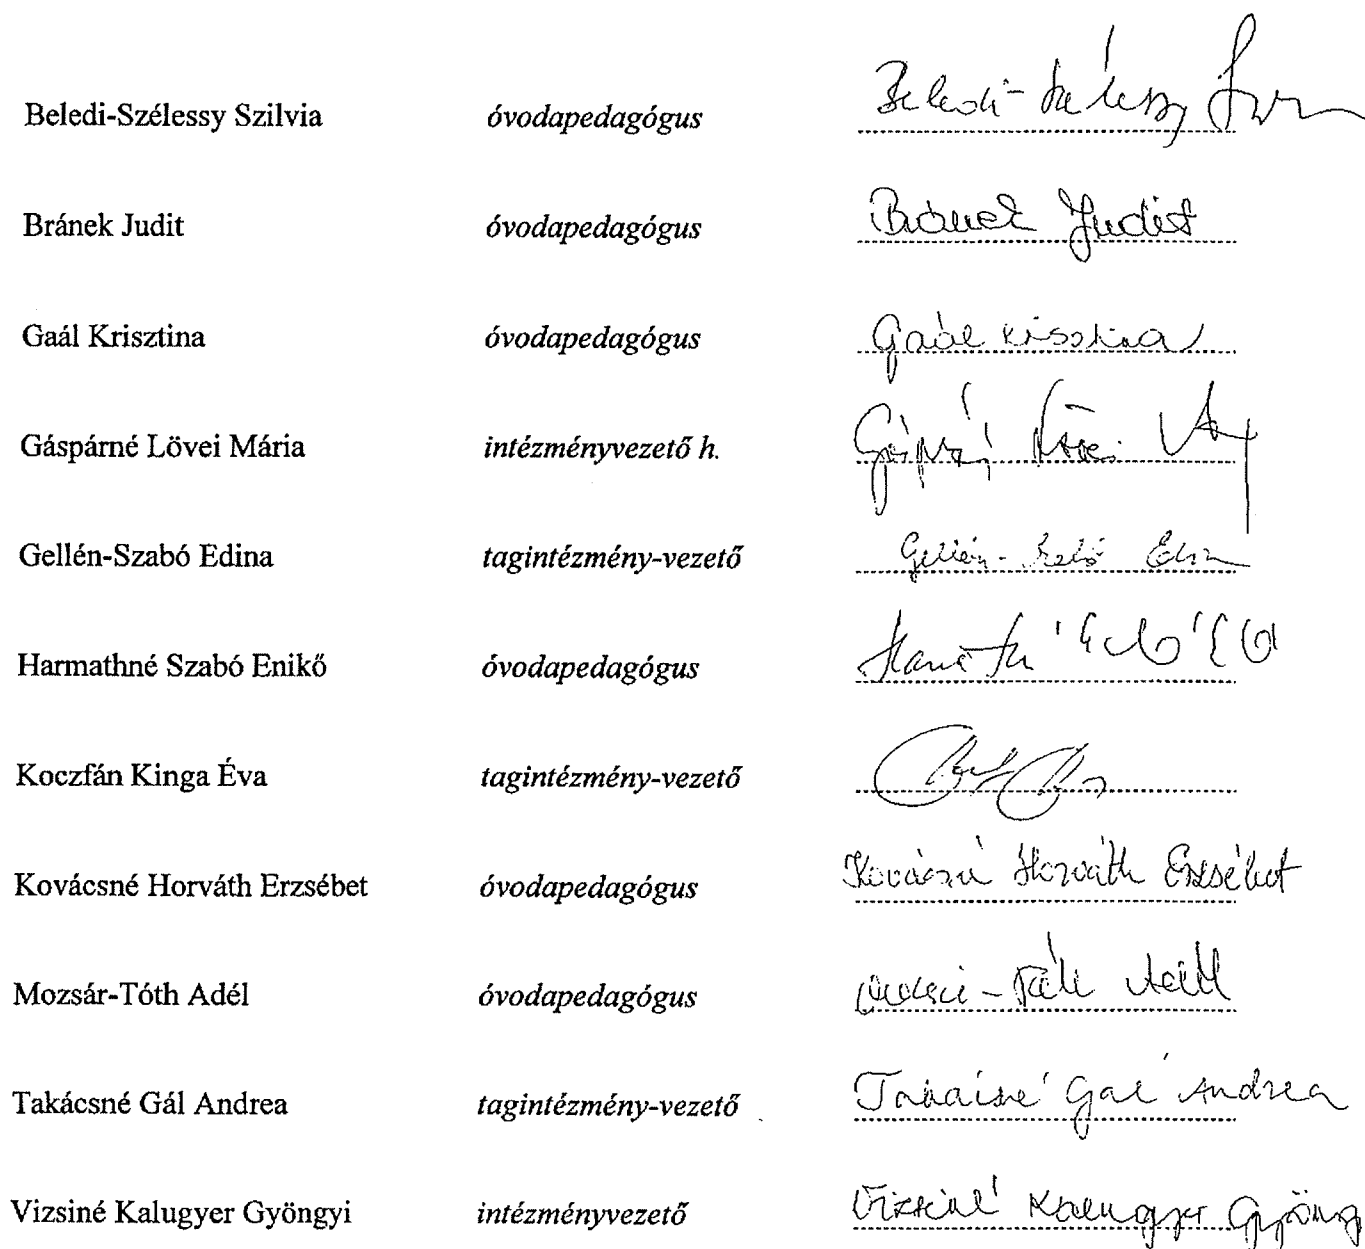 Beledi-Szélessy Szilvia óvodapedagógus Beledi-Szélessy
Bránek Judit óvodapedagógus Bránek Judit
Gaál Krisztina óvodapedagógus Gaál Krisztina
Gáspárné Lövei Mária intézményvezető h.
Gellén-Szabó Edina tagintézmény-vezető Gellén-Szabó Edina
Harmathné Szabó Enikő óvodapedagógus
Koczfán Kinga Éva tagintézmény-vezető
Kovácsné Horváth Erzsébet óvodapedagógus Kovácsné Horváth Erzsébet
Mozsár-Tóth Adél óvodapedagógus Mozsár-Tóth Adél
Takácsné Gál Andrea tagintézmény-vezető Takácsné Gál Andrea
Vizsiné Kalugyer Gyöngyi intézményvezető Vizsiné Kalugyer Gyöngyi